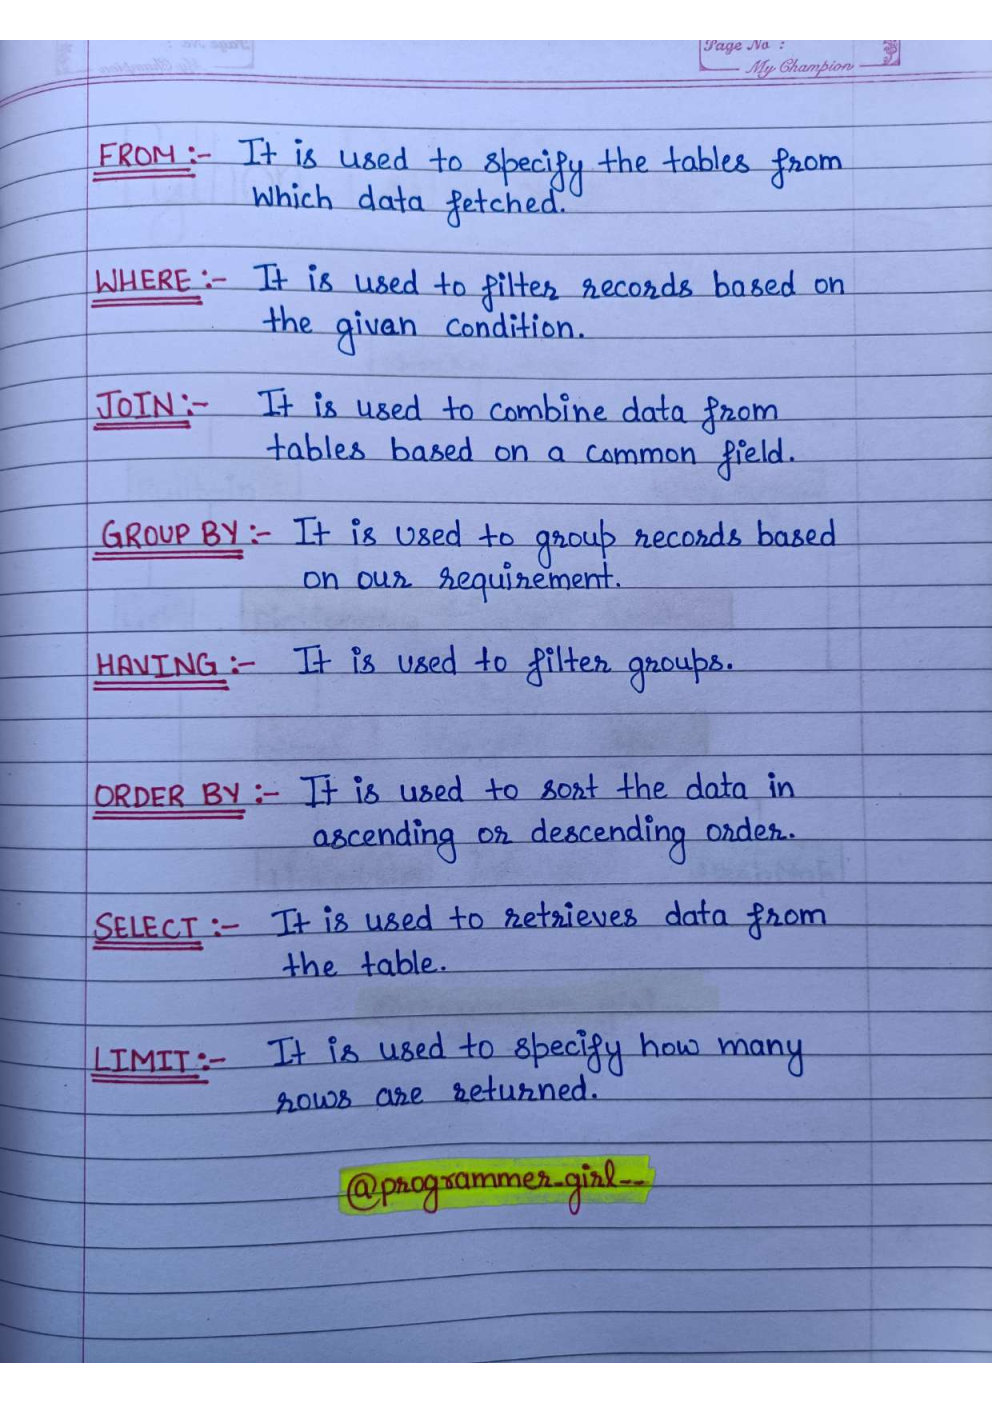 Page No :
My Champion
FROM :- It is used to specify the tables from
which data fetched.
WHERE :- It is used to filter records based on
the givan condition.
JOIN :- It is used to combine data from
tables based on a common field.
GROUP BY :- It is used to group records based
on our requirement.
HAVING :- It is used to filter groups.
ORDER BY :- It is used to sort the data in
ascending or descending order.
SELECT :- It is used to retrieves data from
the table.
LIMIT :- It is used to specify how many
rows are returned.
@programmer_girl__